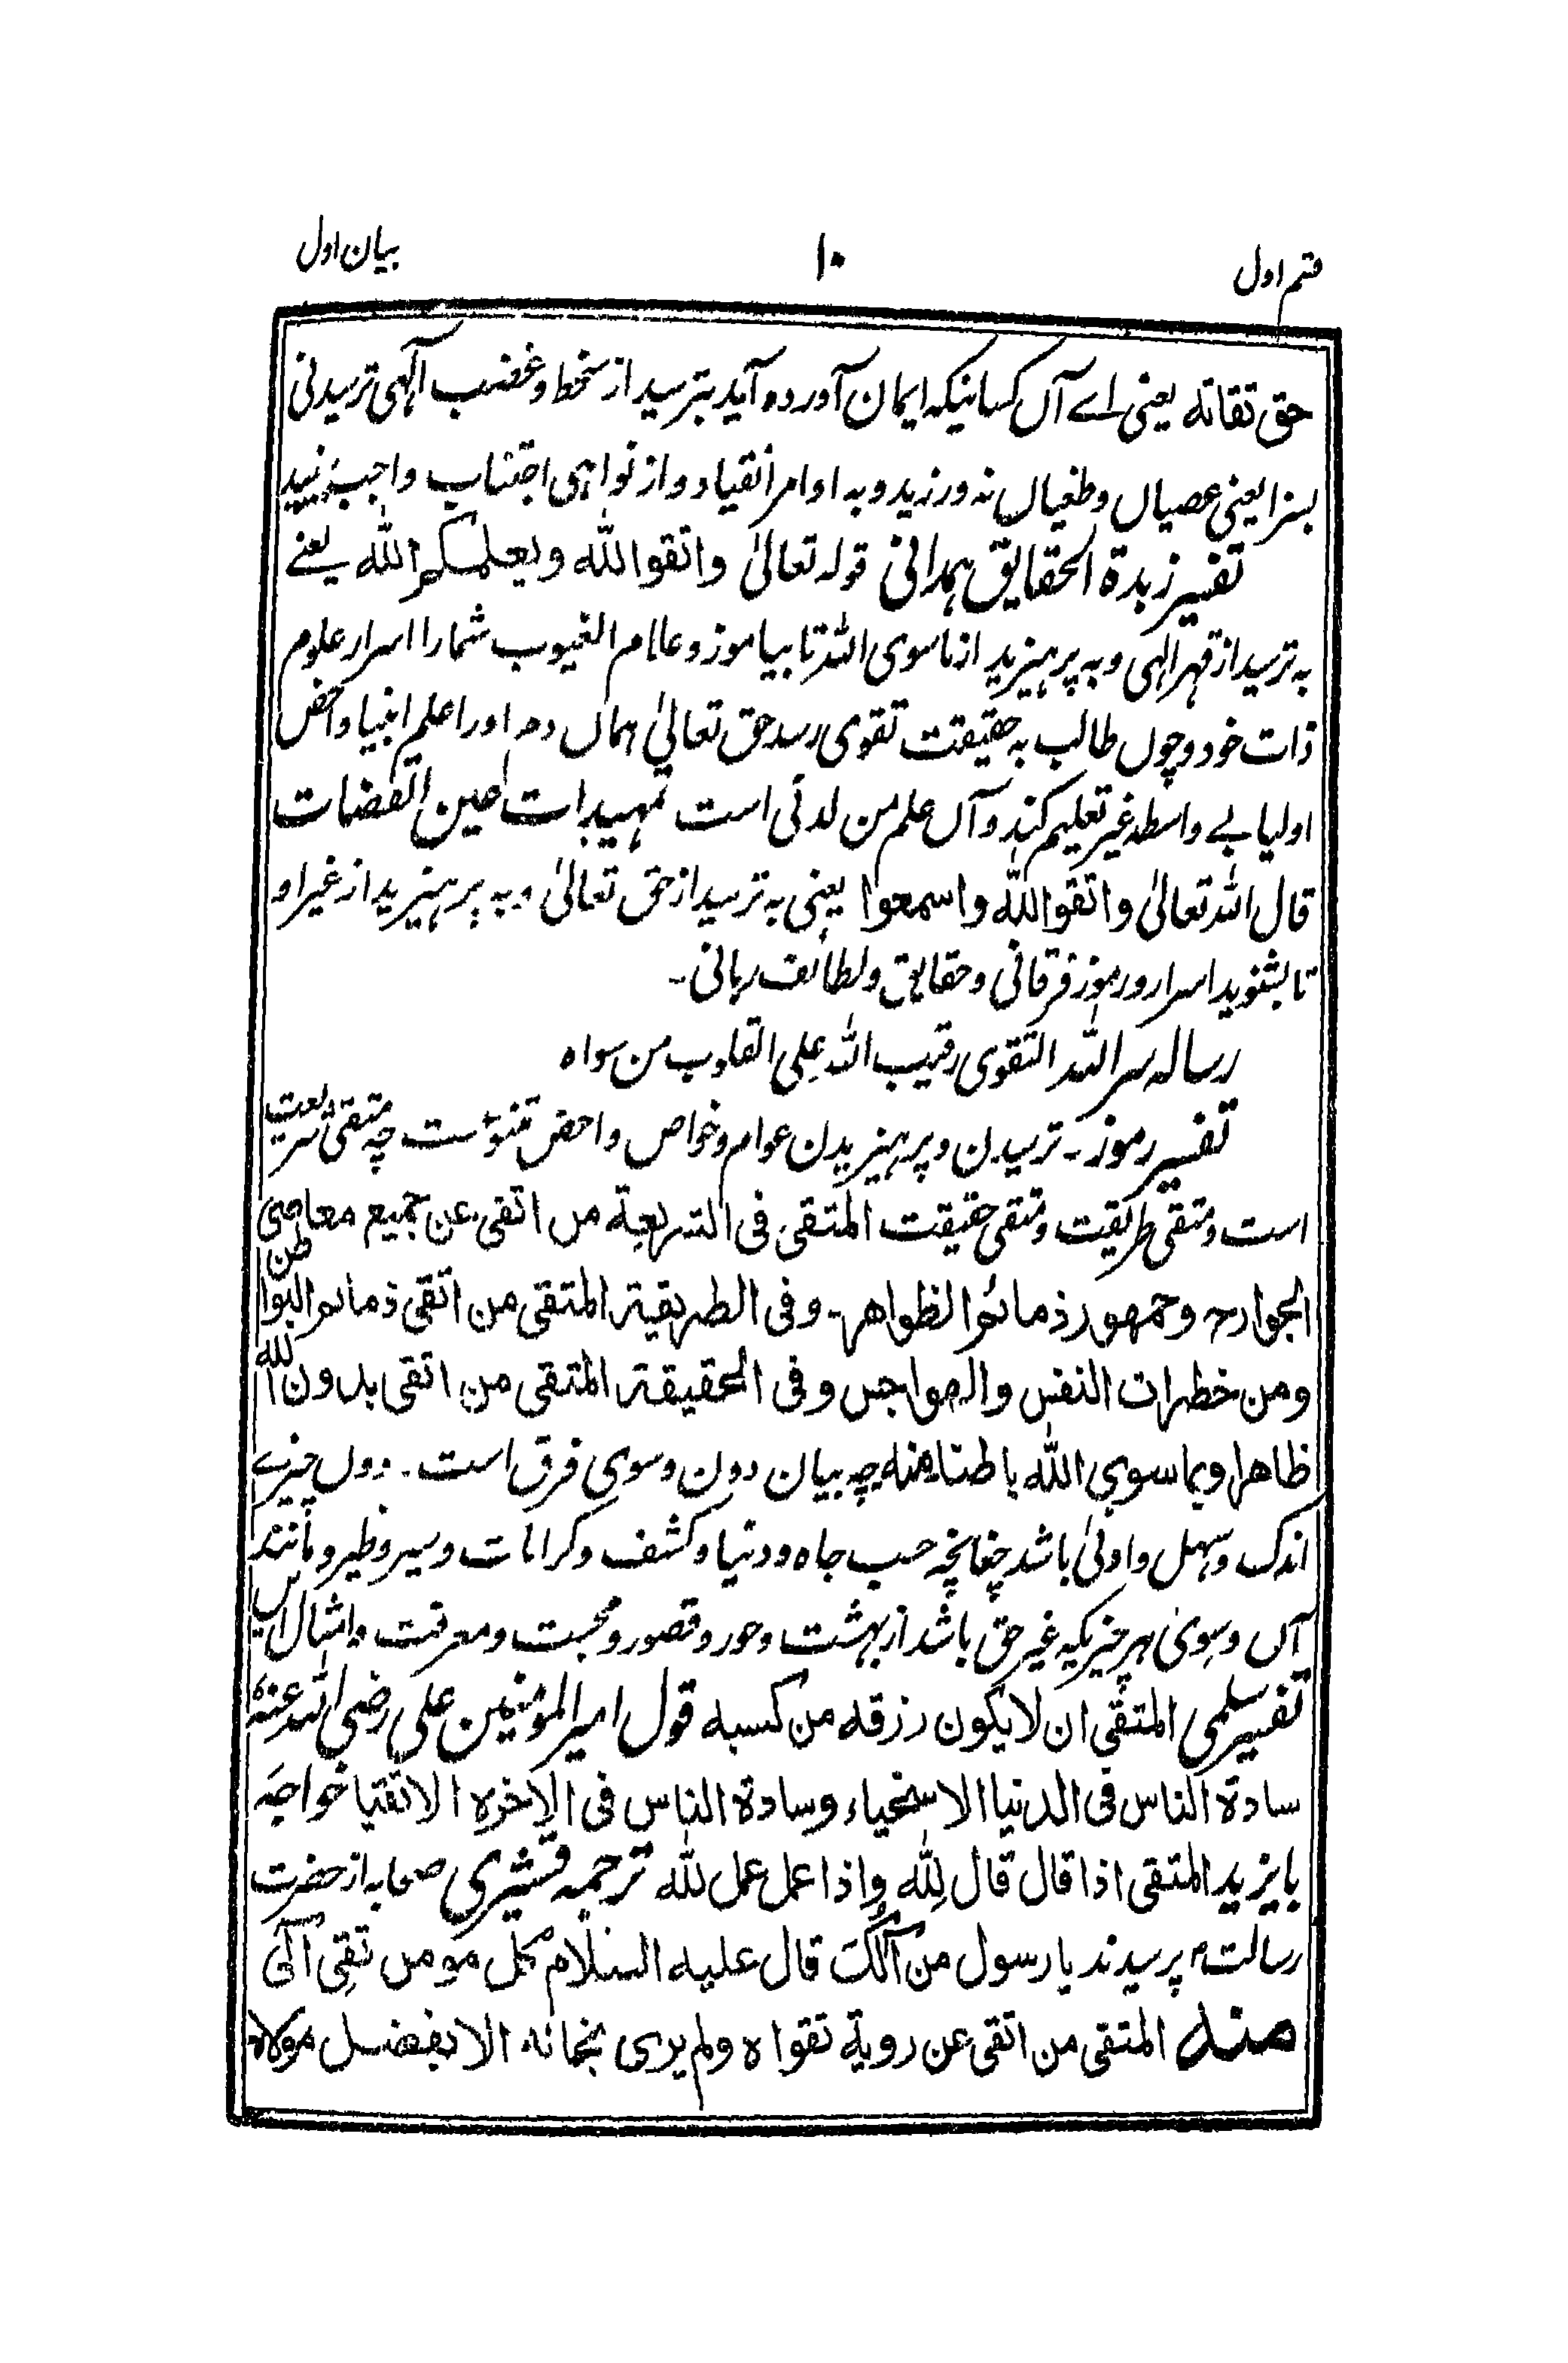 قسم اول ۱۰ بیان اول
حق تقاته یعنی اے آں کسانیکہ ایمان آورده آید بترسید از سخط و غضب آلٰہی ترسیدنی
بسزا یعنی عصیاں و طغیاں نہ ورزید و بہ اوامر انقیاد و از نواہی اجتناب واجب بینید
تفسیر زبدة الحقایق ہمدانی قولہ تعالیٰ واتقوا الله ویعلمکم الله یعنے
بہ ترسید از قہر الٰہی و بہ پرہیزید از ماسوی اللہ تا بیاموزد علام الغیوب شمارا اسرار علوم
ذات خود و چوں طالب بہ حقیقت تقوی رسد حق تعالیٰ ہماں دم او را علم انبیا و اخص
اولیا بے واسطہ غیر تعلیم کند و آں علم من لدنی است تمہیدات عین القضات
قال اللہ تعالیٰ واتقوا الله واسمعوا یعنی بہ ترسید از حق تعالیٰ و بہ پرہیزید از غیر او
تا بشنوید اسرار و رموز فرقانی و حقایق و لطائف ربانی۔
رسالہ سر اللہ التقوی رقیب اللہ علی القلوب من سواہ
تفسیر رموز۔ ترسیدن و پرہیزیدن عوام و خواص و اخص متنوست چہ متقی شریعت
است و متقی طریقت و متقی حقیقت المتقی فی الشریعة من اتقی عن جمیع معاصی
الجوارح وجمهور ذمائم الظواهر۔ وفی الطریقة المتقی من اتقی ذمائم البواطن
ومن خطرات النفس والهواجس وفی الحقیقة المتقی من اتقی بدون الله
ظاهرا وبما سوی الله باطنا منه چہ بیان دون و سوی فرق است۔ دوں چیزے
اندک و سہل و ادنیٰ باشد چنانچہ حب جاہ و دنیا و کشف و کرامات و سیر و طیر و مانند
آں و سوی ہر چیزیکہ غیر حق باشد از بہشت و حور و قصور و محبت و معرفت و امثال ایں
تفسیر سلمی المتقی ان لا یکون رزقه من کسبه قول امیر المومنین علی رضی اللہ عنہ
سادة الناس فی الدنیا الاسخیاء وسادة الناس فی الاخره الاتقیا خواجہ
بایزید المتقی اذا قال قال لله واذا عمل عمل لله ترجمہ قشیری صحابہ از حضرت
رسالت پرسیدند یا رسول من آلک قال علیه السلام کل مومن تقی آلی
منه المتقی من اتقی عن رویة تقواه ولم یری نجاته الا بفضل مولاه